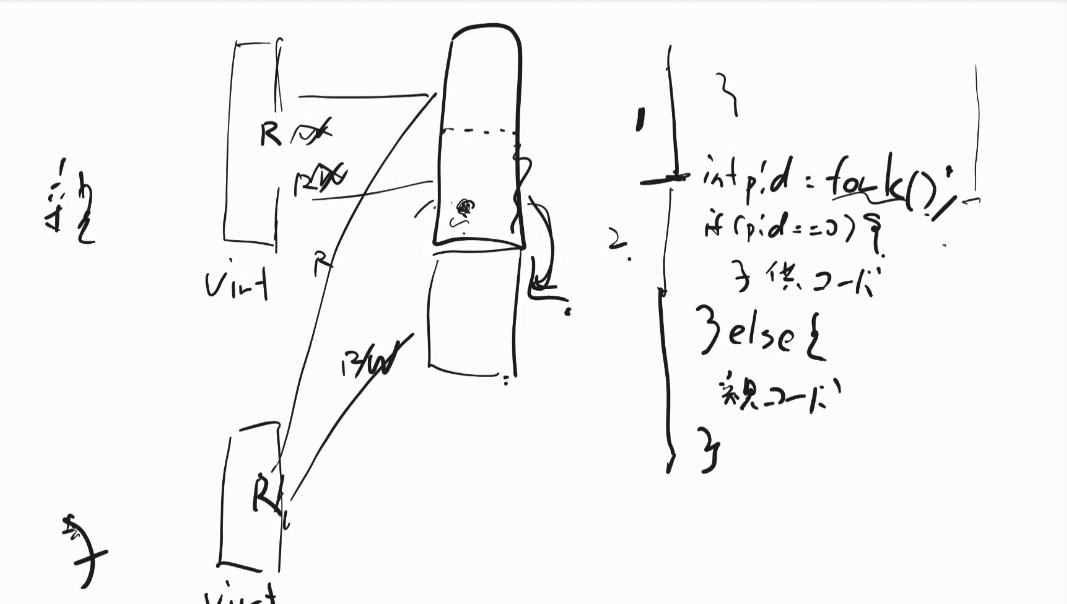 親
R
R/W
Virt
R
R/W
R
子
Virt
1
}
int pid = fork();
2.
if (pid == 0) {
子供コード
} else {
親コード
}